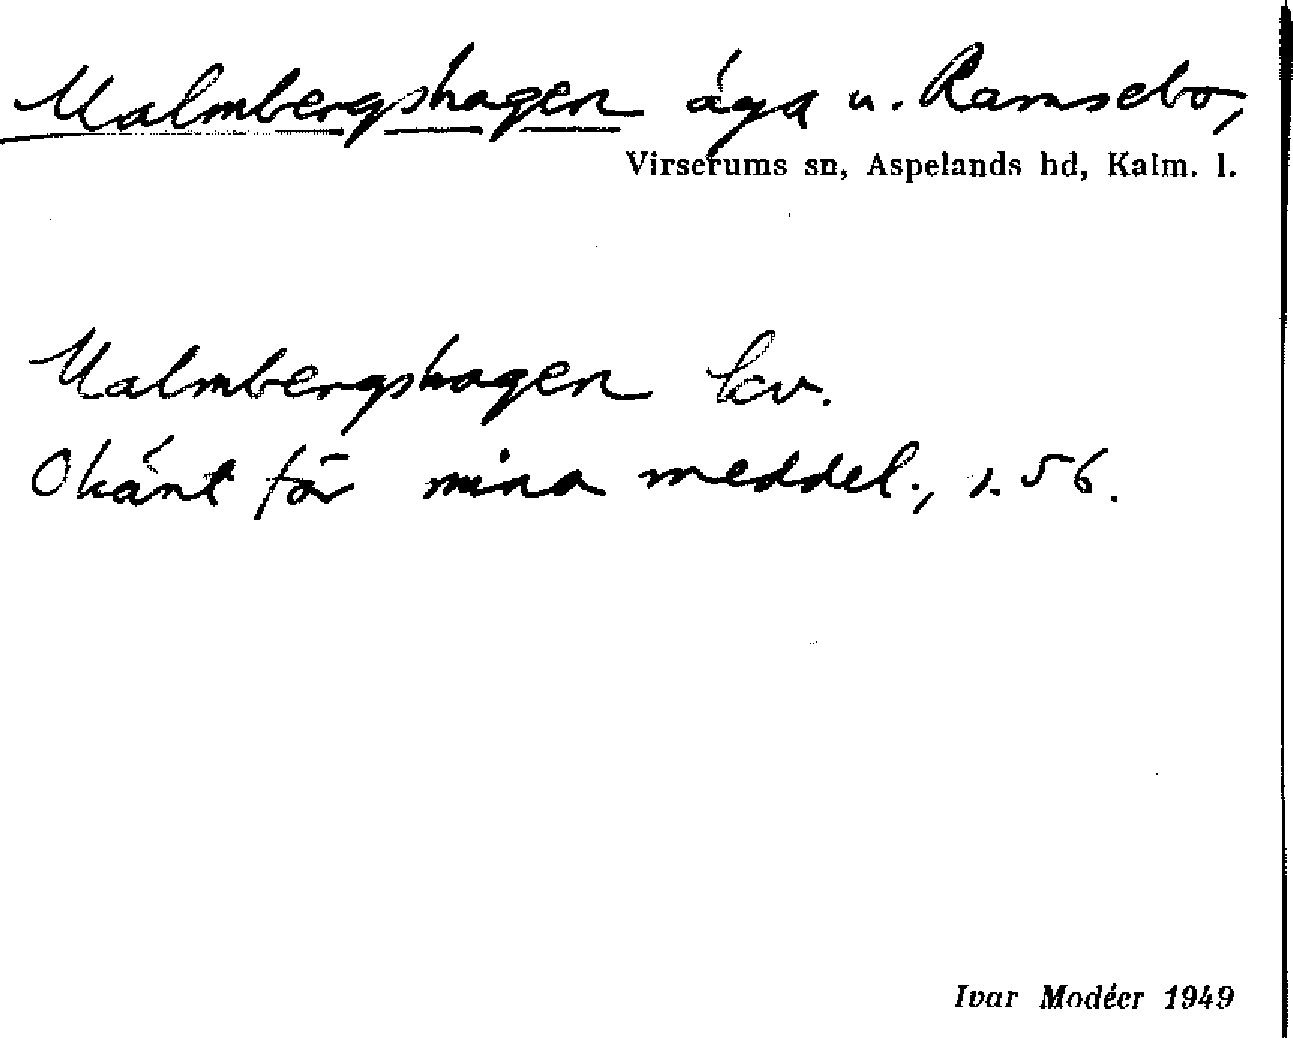 Malmbergshagen äga u. Ramsebo,
Virserums sn, Aspelands hd, Kalm. l.
Malmbergshagen kv.
Okänt för mina meddel., s. 56.
Ivar Modéer 1949